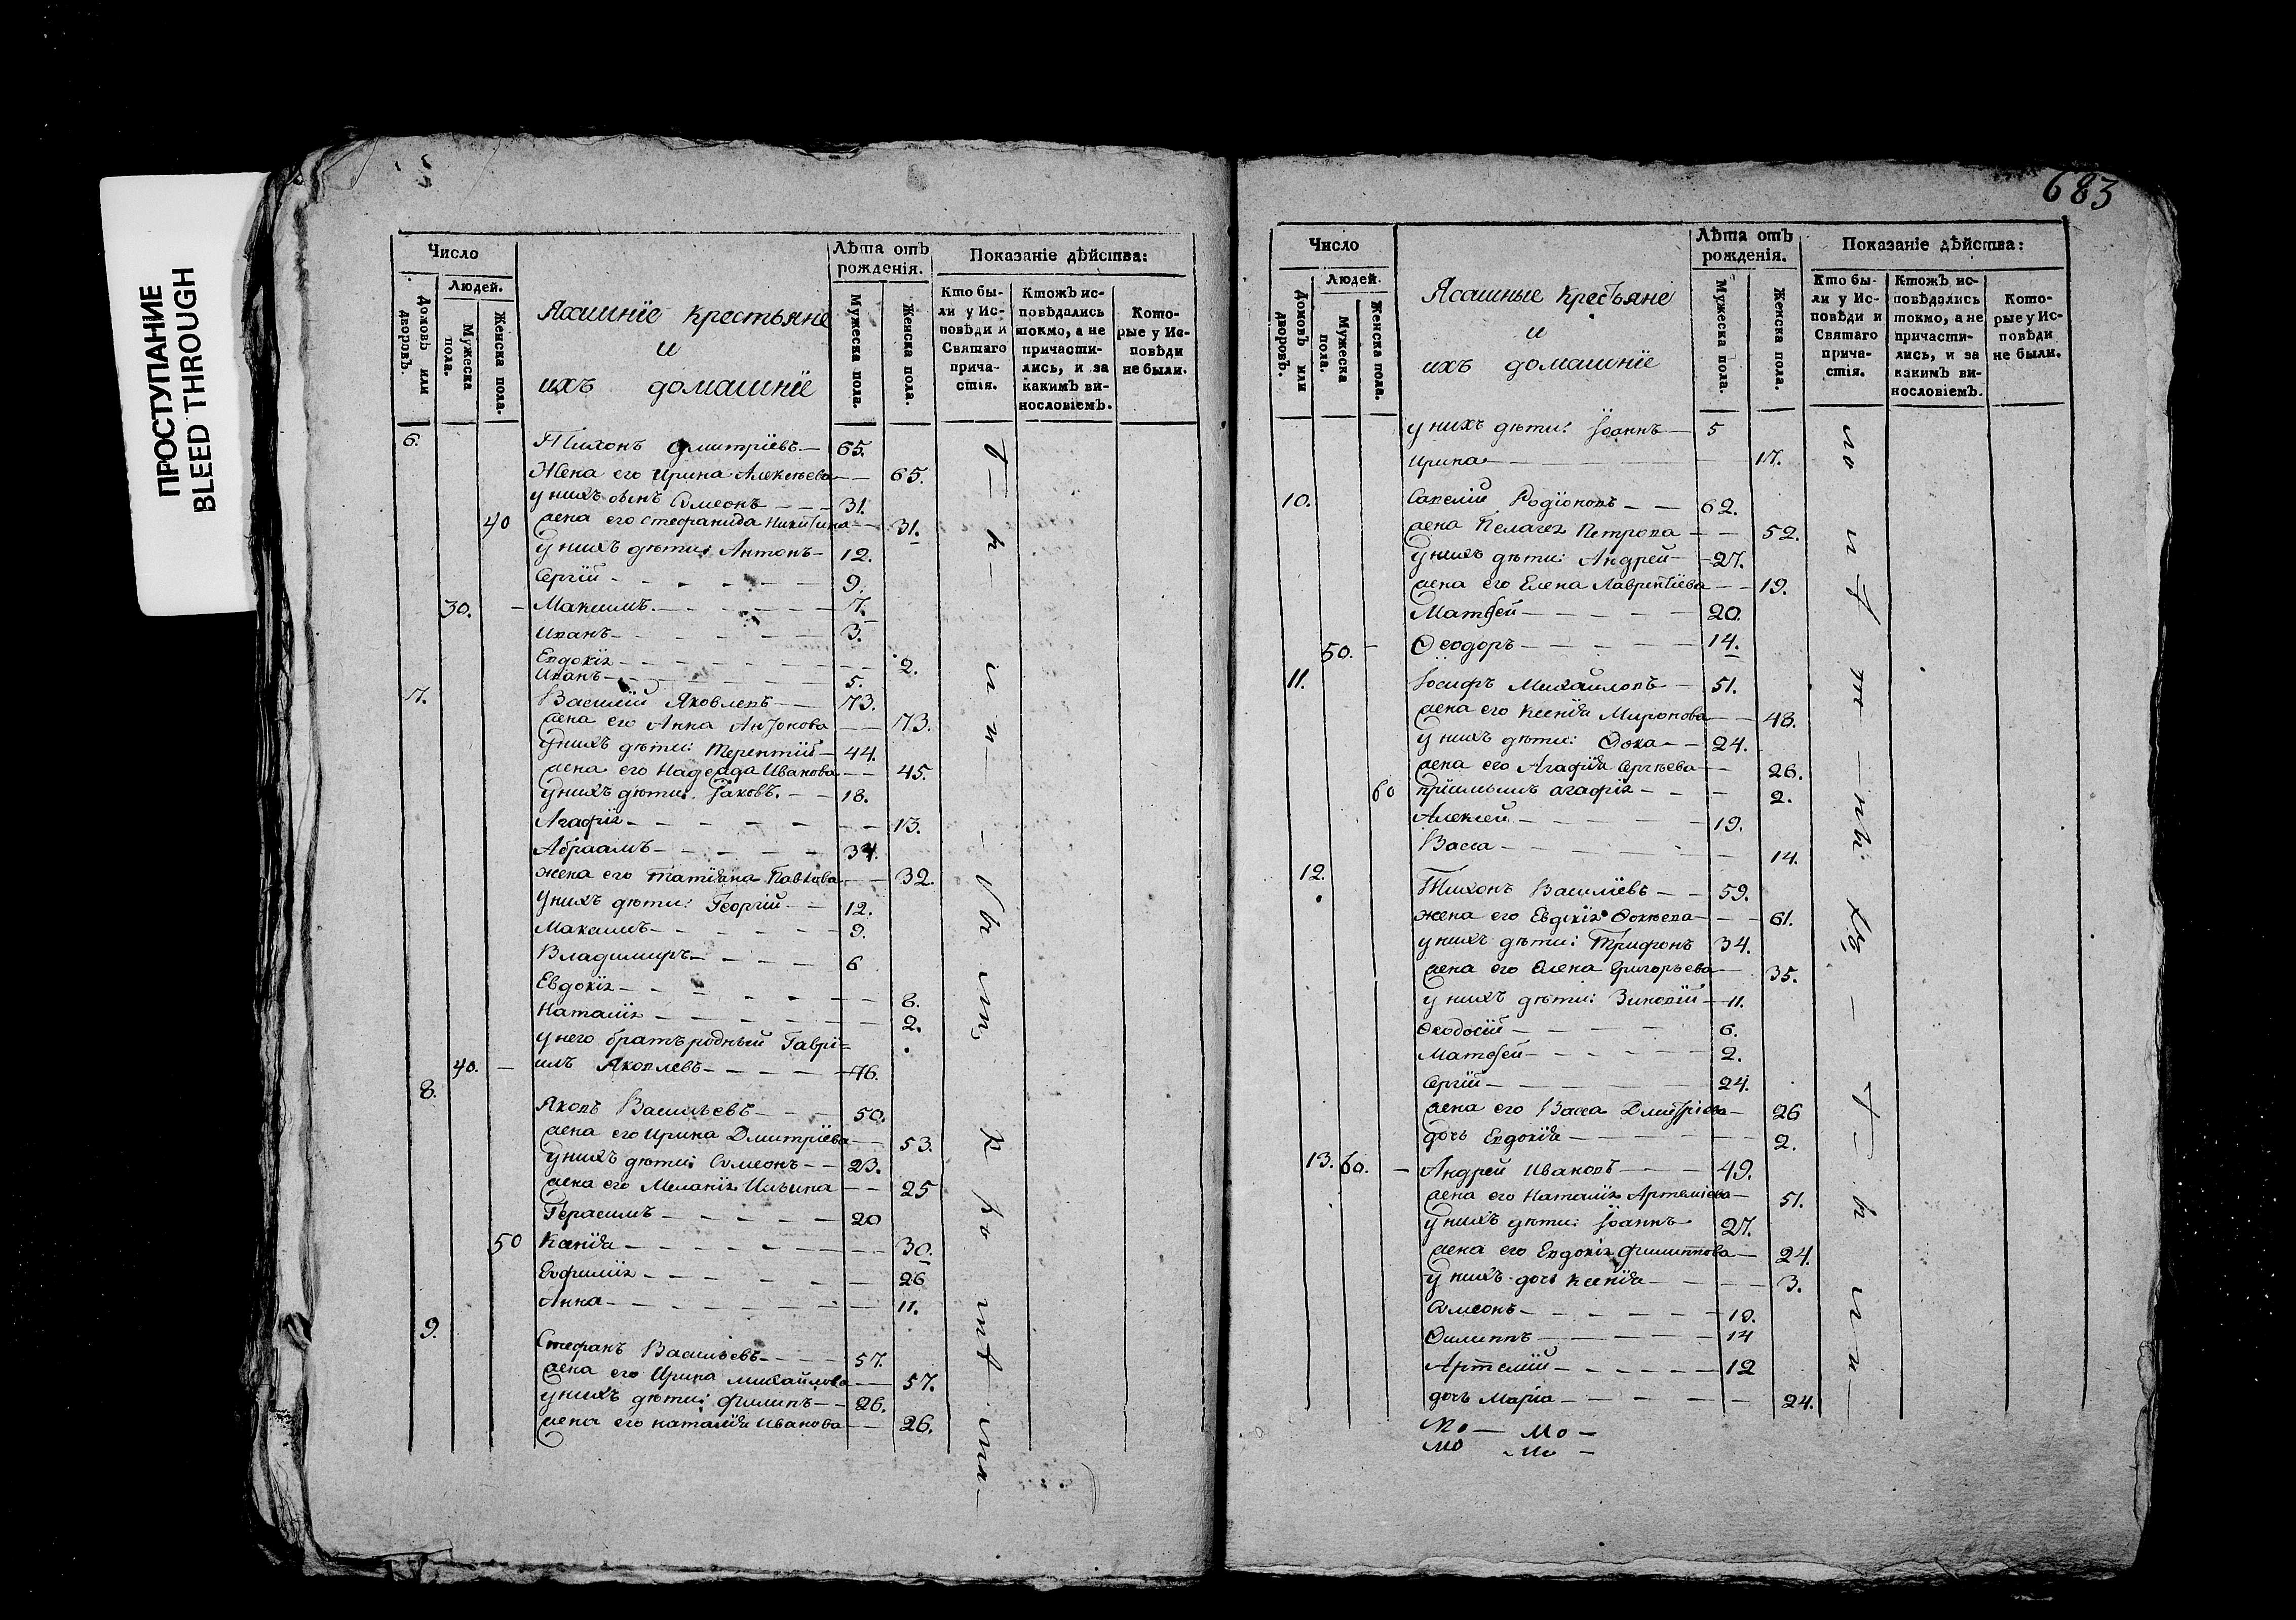 ПРОСТУПАНИЕ
BLEED THROUGH
Число
Людей.
Домовъ или дворовъ.
Мужеска пола.
Женска пола.
Ясашнїе крестьяне
и
ихъ домашнїе
Лѣта отъ рожденія.
Мужеска пола.
Женска пола.
Показаніе дѣйства:
Кто были у Исповѣди и Святаго причастія.
Ктожъ исповѣдались токмо, а не причастились, и за какимъ винословіемъ.
Которые у Исповѣди не были.
6. Тихонъ Дмитріевъ — 65.
Жена его Ирина Алексѣева — 65.
у нихъ сынъ Симеонъ — 31.
40 жена его Стефанида Никитина — 31.
у нихъ дѣти: Антонъ — 12.
Сергїй — 9.
30. — Максимъ — 7.
Иванъ — 3.
Евдокїя — 2.
Иванъ — 5.
7. Василїй Яковлевъ — 73.
жена его Анна Антонова — 73.
у нихъ дѣти: Терентїй — 44.
жена его Надежда Иванова — 45.
у нихъ дѣти: Іаковъ — 18.
Агафїя — 13.
Абраамъ — 34.
жена его Татїана Павлова — 32.
у нихъ дѣти: Георгїй — 12.
Максимъ — 9.
Владимиръ — 6
Евдокїя — 8.
Наталїя — 2.
у него братъ родный Гаврі=
40. — илъ Яковлевъ — 76.
8.
Яковъ Васильевъ — 50.
жена его Ирина Дмитрїева — 53.
у нихъ дѣти: Симеонъ — 23.
жена его Меланїя Ильина — 25
Герасимъ — 20
50 Ксенїа — 30.
Евфимїя — 26
Анна — 11.
9.
Стефанъ Васильевъ — 57.
жена его Ирина Михайлова — 57.
у нихъ дѣти: Филипъ — 26.
жена его Наталїа Иванова — 26.
683
Число
Людей.
Домовъ или дворовъ.
Мужеска пола.
Женска пола.
Ясашные крестьяне
и
ихъ домашнїе
Лѣта отъ рожденія.
Мужеска пола.
Женска пола.
Показаніе дѣйства:
Кто были у Исповѣди и Святаго причастія.
Ктожъ исповѣдались токмо, а не причастились, и за какимъ винословіемъ.
Которые у Исповѣди не были.
у нихъ дѣти: Іоаннъ — 5
Ирина — 17.
10. Савелїй Родїоновъ — 62.
жена Пелагея Петрова — 52.
у нихъ дѣти: Андрей — 27.
жена его Елена Лаврентїева — 19.
Матѳей — 20.
50. — Ѳеодоръ — 14.
11. Іосифъ Михайловъ — 51.
жена его Ксенїа Миронова — 48.
у нихъ дѣти: Ѳока — 24.
жена его Агафїа Сергѣева — 26.
60 прїимышъ агафїя — 2.
Алексей — 19.
Васса — 14.
12.
Тихонъ Василїевъ — 59.
жена его Евдокїя Ѳокѣева — 61.
у нихъ дѣти: Трифонъ 34.
жена его Елена Григорьева — 35.
у нихъ дѣти: Зиновїй — 11.
Ѳеодосїй — 6.
Матѳей — 2.
Сергїй — 24.
жена его Васса Дмитрїева — 26
дочь Евдокїа — 2.
13. 60. — Андрей Ивановъ — 49.
жена его Наталїя Артемїева — 51.
у нихъ дѣти: Іоаннъ 27.
жена его Евдокїя Филиппова — 24.
у нихъ дочь Ксенїа — 3.
Симеонъ — 19.
Ѳилиппъ — 14
Артемїй — 12
дочь Марїа — 24.